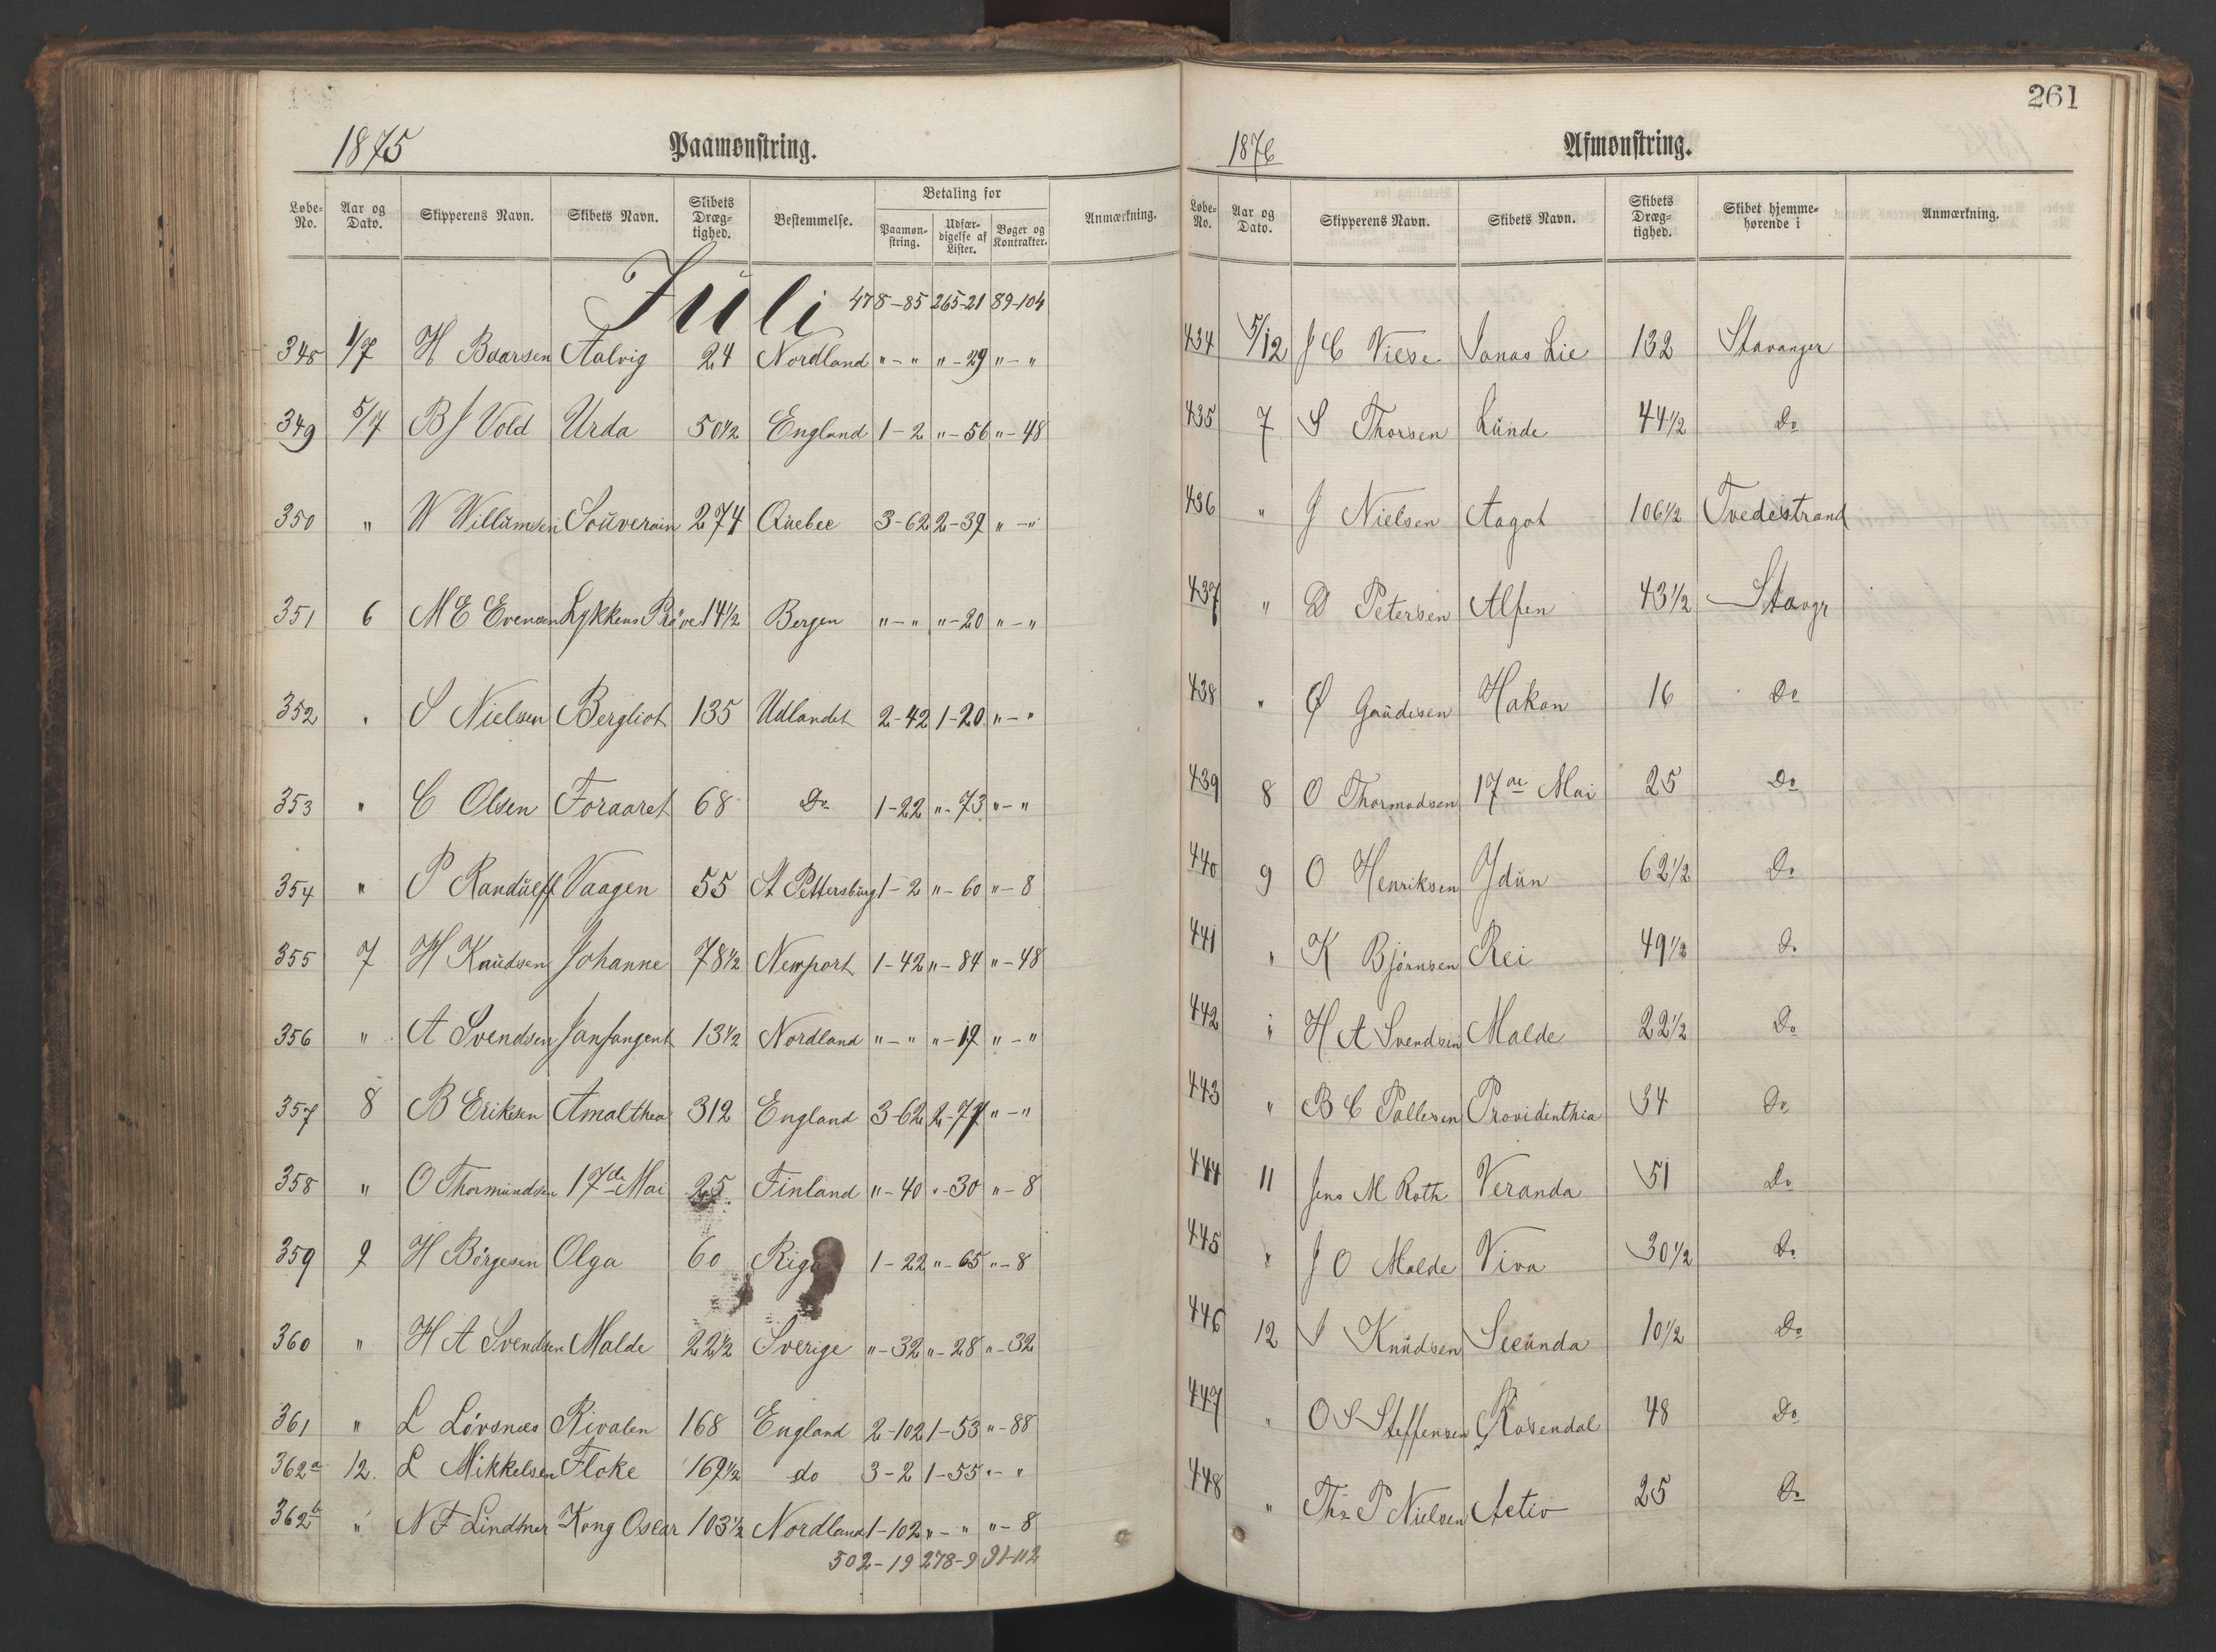 261
1875 Paamønstring.
Løbe-No. Aar og Dato. Skipperens Navn. Skibets Navn. Skibets Dræg-tighed. Bestemmelse. Betaling for Paamøn-string. Udfær-digelse af Lister. Bøger og Kontrakter. Anmærkning.
Juli 478-85 265-21 89-104
348 1/7 H Baarsen Aalvig 24 Nordland "-" "-29 "-"
349 5/7 B J Vold Urda 50 1/2 England 1-2 "-56 "-48
350 " W Willumsen Souverain 274 Quebec 3-62 2-39 "-"
351 6 M E Evensen Lykkens Pröve 14 1/2 Bergen "-" "-20 "-"
352 " S Nielsen Bergliot 135 Udlandet 2-42 1-20 "-"
353 " C Olsen Foraaret 68 Do 1-22 "-73 "-"
354 " P Randulff Vaagen 55 St Pettersburg 1-2 "-60 "-8
355 7 H Knudsen Johanne 78 1/2 Newport 1-42 "-84 "-48
356 " A Svendsen Janfangent 13 1/2 Nordland "-" "-19 "-"
357 8 B Eriksen Amalthea 312 England 3-62 2-77 "-"
358 " O Thormundsen 17de Mai 25 Finland "-40 "-30 "-8
359 9 H Börgesen Olga 60 Riga 1-22 "-65 "-8
360 " H A Svendsen Malde 22 1/2 Sverige "-32 "-28 "-32
361 " L Lövsnæs Rivalen 168 England 2-102 1-53 "-88
362a 12. L Mikkelsen Floke 169 1/2 do 3-2 1-55 "-"
362b " N F Lindtner Kong Oscar 103 1/2 Nordland 1-102 "-" "-8
502-19 278-9 91-112
1876 Afmønstring.
Løbe-No. Aar og Dato. Skipperens Navn. Skibets Navn. Skibets Dræg-tighed. Skibet hjemme-hørende i Anmærkning.
434 5/12 J C Viese Jonas Lie 132 Stavanger
435 7 S Thorsen Lunde 44 1/2 Do
436 " J Nielsen Aagot 106 1/2 Tvedestrand
437 " D Petersen Alfen 43 1/2 Stavgr
438 " Ø Gaudesen Hakon 16 Do
439 8 O Thormodsen 17de Mai 25 Do
440 9 O Henriksen Ydun 62 1/2 Do
441 " K Björnsen Rei 49 1/2 Do
442 " H A Svendsen Malde 22 1/2 Do
443 " B C Pallesen Providenthia 34 Do
444 11 Jens M Roth Veranda 51 Do
445 " J O Malde Viva 30 1/2 Do
446 12 S Knudsen Secunda 10 1/2 Do
447 " O S Steffensen Rosendal 48 Do
448 " Ths P Nielsen Activ 25 Do